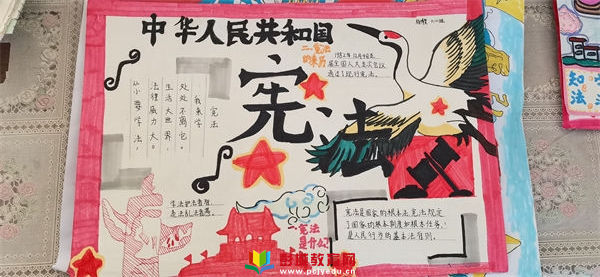 中华人民共和国
宪法
二、宪法的来历
1982年12月4日第
届全国人大五次会议
通过了现行宪法。
宪法
我来学
处处不离它。
生活大世界
法律威力大。
从小要学法，
一、宪法是什么？
宪法是国家的根本法宪法规定
了国家的根本制度和根本任务，
是人民行为的基本法准则。
知法
彭虎教育网
www.pcjyedu.cn